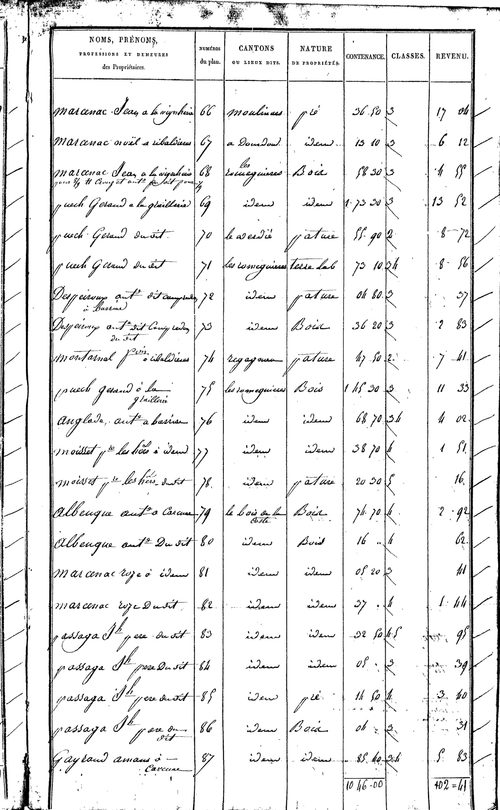 NOMS, PRÉNOMS, PROFESSIONS ET DEMEURES des Propriétaires. NUMÉROS du plan. CANTONS OU LIEUX DITS. NATURE DE PROPRIÉTÉS. CONTENANCE. CLASSES. REVENU.
marcenac Jean a la vignherie 66 moulinares pré 36 50 3 17 04
marcenac noël a ribaldieres 67 a Dourdou idem 13 10 3 6 12
marcenac Jean a la vignherie 68 les romeguieres Bois 58 30 3 4 55
puech Geraud a la graillerie 69 idem idem 1 73 30 3 13 52
puech Geraud du dit 70 pature 55 90 2 8 72
puech Geraud du dit 71 les romeguieres terre lab 73 10 8 56
Despeiroux antne dit 72 idem pature 04 80 3 37
Despeiroux antne dit 73 idem Bois 36 20 3 2 83
du dit
montarnal a ribaldieres 74 regagnoux pature 47 50 2 7 41
puech geraud à la graillerie 75 les romeguieres Bois 1 45 30 3 11 33
anglade, antne a 76 idem idem 68 70 34 4 02
moisset pre les hérs à idem 77 idem idem 38 70 4 1 51
moisset pre les hérs du dit 78 idem pature 20 30 5 16
albenque antne a 79 le bois de la coste Bois 74 70 4 2 92
albenque antne Du dit 80 idem Bois 16 - 4 62
marcenac roze à idem 81 idem idem 05 20 3 41
marcenac roze Du dit 82 idem idem 37 - 4 1 44
passaga Jh pere du dit 83 idem idem 32 50 45 95
passaga Jh pere Du dit 84 idem idem 05 - 3 39
passaga Jh pere du dit 85 idem pré 14 50 4 3 40
passaga Jh pere du dit 86 idem Bois 04 - 3 31
Gayraud amans à 87 idem idem 85 40 34 5 83
10 46 = 00 102 = 41